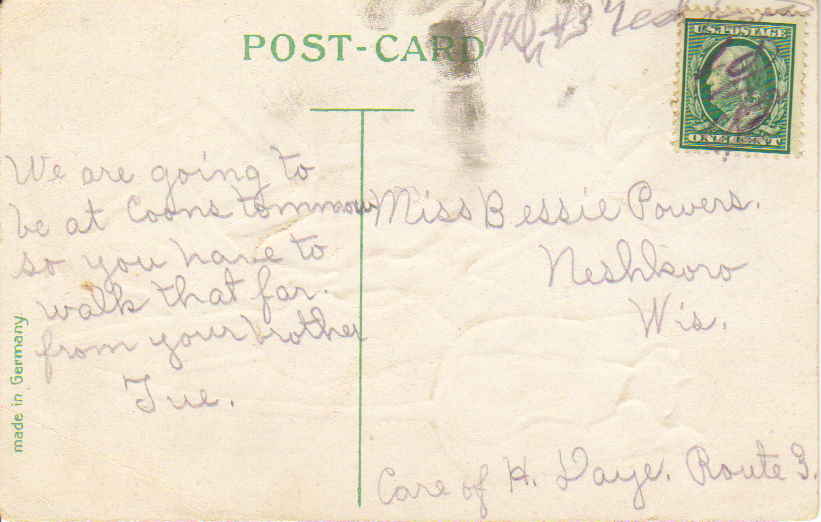 POST-CARD
U.S. POSTAGE
We are going to
be at Coons tommrow
so you have to
walk that far.
from your brother
Tue.
Miss Bessie Powers.
Neshkoro
Wis.
Care of H. Daye. Route 3.
made in Germany